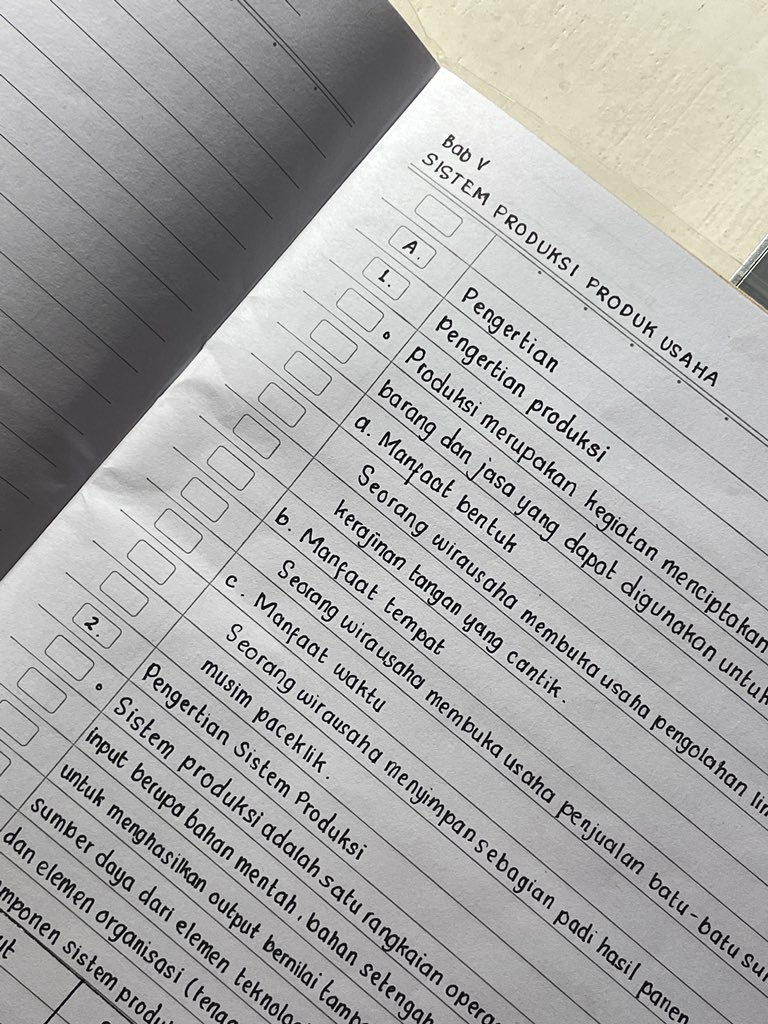 Bab V
SISTEM PRODUKSI PRODUK USAHA
A. Pengertian
1. Pengertian produksi
Produksi merupakan kegiatan menciptakan
barang dan jasa yang dapat digunakan untuk
a. Manfaat bentuk
Seorang wirausaha membuka usaha pengolahan
kerajinan tangan yang cantik.
b. Manfaat tempat
Seorang wirausaha membuka usaha penjualan batu-batu
c. Manfaat waktu
Seorang wirausaha menyimpan sebagian padi hasil panen
musim paceklik.
2. Pengertian Sistem Produksi
Sistem produksi adalah satu rangkaian
input berupa bahan mentah, bahan
untuk menghasilkan output bernilai
sumber daya dari elemen
dan elemen organisasi
sistem